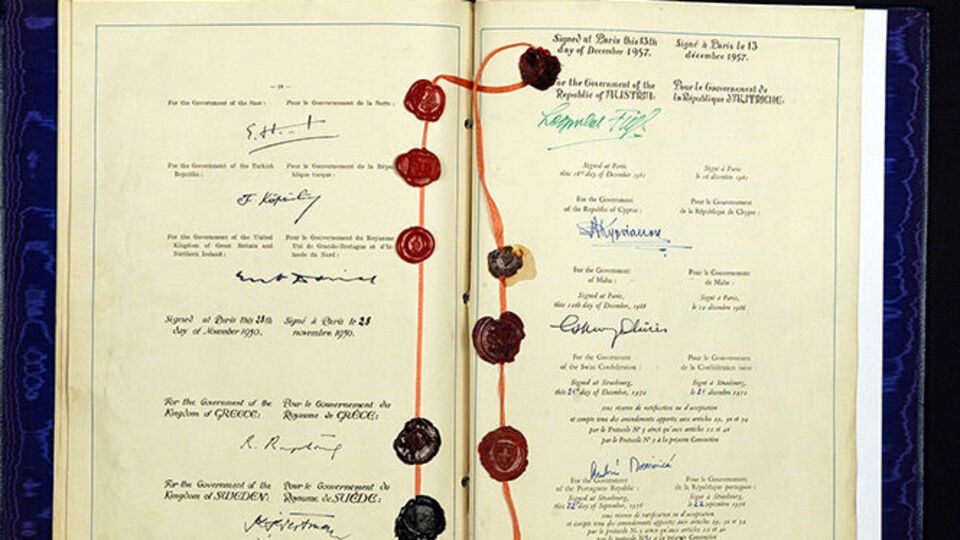 — 18 —
For the Government of the Saar: Pour le Gouvernement de la Sarre:
For the Government of the Turkish Pour le Gouvernement de la Répu-
Republic: blique turque:
For the Government of the United Pour le Gouvernement du Royaume
Kingdom of Great Britain and Uni de Grande-Bretagne et d'Ir-
Northern Ireland: lande du Nord:
Signed at Paris this 28th Signé à Paris le 28
day of November 1950. novembre 1950.
For the Government of the Pour le Gouvernement du
Kingdom of GREECE: Royaume de GRÈCE:
For the Government of the Pour le Gouvernement du
Kingdom of SWEDEN: Royaume de SUÈDE:
Signed at Paris this 13th Signé à Paris le 13
day of December 1957. décembre 1957.
For the Government of the Pour le Gouvernement de
Republic of AUSTRIA: la République d'AUTRICHE:
Signed at Paris Signé à Paris
this 16th day of December 1961 le 16 décembre 1961
For the Government Pour le Gouvernement
of the Republic of Cyprus: de la République de Chypre:
For the Government Pour le Gouvernement
of Malta: de Malte:
Signed at Paris, Signé à Paris,
this 12th day of December, 1966 le 12 décembre, 1966
For the Government Pour le Gouvernement
of the Swiss Confederation: de la Confédération suisse
Signed at Strasbourg, Signé à Strasbourg,
this 21st day of December, 1972 le 21 décembre 1972
sous réserve de ratification ou d'acceptation
et compte tenu des amendements apportés aux articles 29, 30 et 34
par le Protocole Nº 3 ainsi qu'aux articles 22 et 40
par le Protocole Nº 5 à la présente Convention
For the Government Pour le Gouvernement
of the Portuguese Republic: de la République portugaise:
Signed at Strasbourg, Signé à Strasbourg,
this 22d day of September, 1976 le 22 septembre 1976
sous réserve de ratification ou d'acceptation
et compte tenu des amendements apportés aux articles 29, 30 et 34